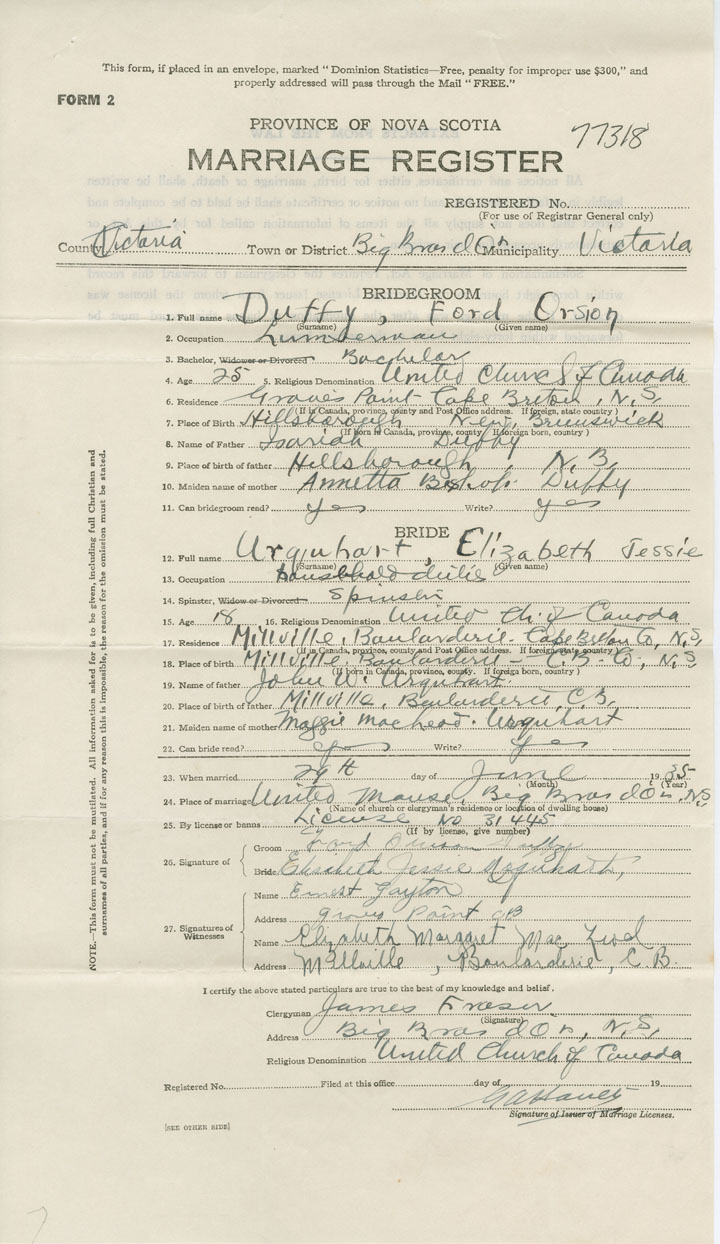 This form, if placed in an envelope, marked "Dominion Statistics—Free, penalty for improper use $300," and
properly addressed will pass through the Mail "FREE."
FORM 2
PROVINCE OF NOVA SCOTIA
77318
MARRIAGE REGISTER
REGISTERED No.
(For use of Registrar General only)
County Victoria Town or District Big Bras d'Or Municipality Victoria
BRIDEGROOM
1. Full name Duffy, Ford Orsion
(Surname) (Given name)
2. Occupation Lumberman
3. Bachelor, Widower or Divorced Bachelor
4. Age 25 5. Religious Denomination United Church of Canada
6. Residence Groves Point - Cape Breton, N.S.
(If in Canada, province, county and Post Office address. If foreign, state country)
7. Place of Birth Hillsborough New Brunswick
(If born in Canada, province, county. If foreign born, country)
8. Name of Father Isariah Duffy
9. Place of birth of father Hillsborough, N.B.
10. Maiden name of mother Annetta Bishop Duffy
11. Can bridegroom read? yes Write? yes
BRIDE
12. Full name Urquhart, Elizabeth Jessie
(Surname) (Given name)
13. Occupation household dutie
14. Spinster, Widow or Divorcee Spinster
15. Age 18 16. Religious Denomination United Ch. of Canada
17. Residence Millville, Boularderie - Cape Breton Co, N.S.
(If in Canada, province, county and Post Office address. If foreign state country)
18. Place of birth Millville, Boularderie - C.B. Co, N.S.
(If born in Canada, province, county. If foreign born, country)
19. Name of father John W. Urquhart
20. Place of birth of father Millville, Boularderie, C.B.
21. Maiden name of mother Maggie MacLeod Urquhart
22. Can bride read? yes Write? yes
23. When married 29th day of June 1935
(Month) (Year)
24. Place of marriage United Manse, Big Bras d'Or, N.S.
(Name of church or clergyman's residence or location of dwelling house)
25. By license or banns License No 31445
(If by license, give number)
26. Signature of Groom Ford Duffy
Bride Elizabeth Jessie Urquhart,
27. Signatures of Witnesses
Name Ernest Gayton
Address Groves Point CB
Name Elizabeth Margaret Mac Leod
Address Millville, Boularderie, C.B.
I certify the above stated particulars are true to the best of my knowledge and belief.
Clergyman James Fraser
(Signature)
Address Big Bras d'Or, N.S.
Religious Denomination United Church of Canada
Registered No. Filed at this office day of 19
Signature of Issuer of Marriage Licenses.
[SEE OTHER SIDE]
NOTE.—This form must not be mutilated. All information asked for is to be given, including full Christian and
surnames of all parties, and if for any reason this is impossible, the reason for the omission must be stated.